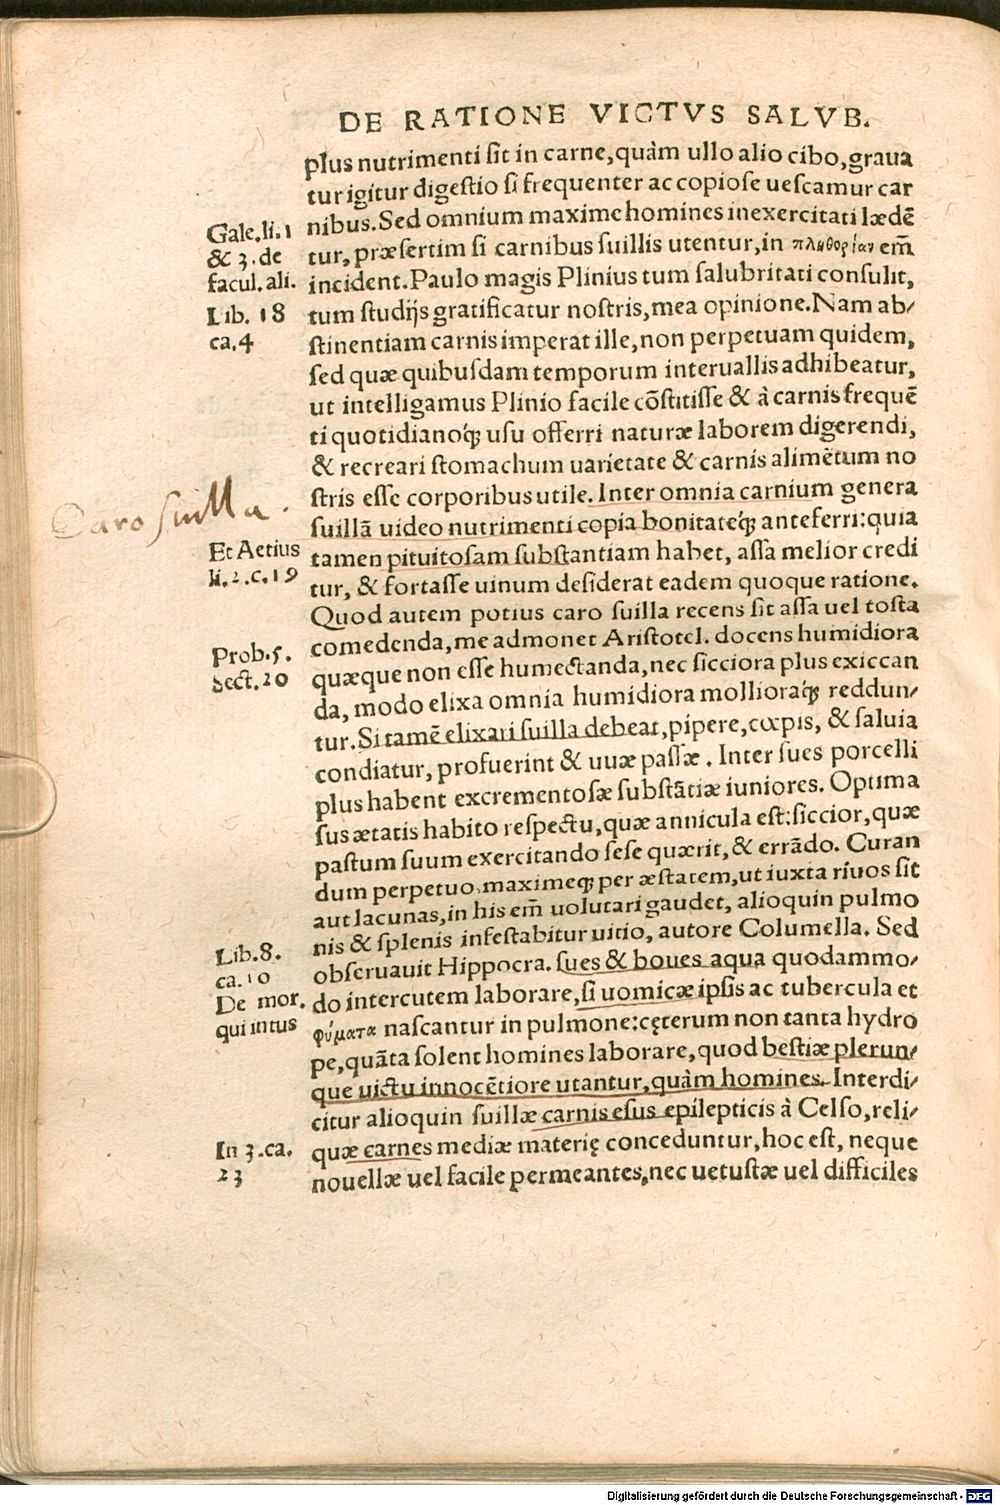 DE RATIONE VICTVS SALVB.
plus nutrimenti sit in carne, quàm ullo alio cibo, graua
tur igitur digestio si frequenter ac copiose uescamur car
nibus. Sed omnium maxime homines inexercitati lædẽ
tur, præsertim si carnibus suillis utentur, in πληθορίαν em̃
incident. Paulo magis Plinius tum salubritati consulit,
tum studijs gratificatur nostris, mea opinione. Nam ab/
stinentiam carnis imperat ille, non perpetuam quidem,
sed quæ quibusdam temporum interuallis adhibeatur,
ut intelligamus Plinio facile cõstitisse & à carnis frequẽ
ti quotidianoq́; usu offerri naturæ laborem digerendi,
& recreari stomachum uarietate & carnis alimẽtum no
stris esse corporibus utile. Inter omnia carnium genera
suillã uideo nutrimenti copia bonitateq́; anteferri: quia
tamen pituitosam substantiam habet, assa melior credi
tur, & fortasse uinum desiderat eadem quoque ratione.
Quod autem potius caro suilla recens sit assa uel tosta
comedenda, me admonet Aristotel. docens humidiora
quæque non esse humectanda, nec sicciora plus exiccan
da, modo elixa omnia humidiora mollioraq́; reddun/
tur. Si tamẽ elixari suilla debeat, pipere, cœpis, & saluia
condiatur, profuerint & uuæ passæ. Inter sues porcelli
plus habent excrementosæ substãtiæ iuniores. Optima
sus ætatis habito respectu, quæ annicula est: siccior, quæ
pastum suum exercitando sese quærit, & errãdo. Curan
dum perpetuo, maximeq; per æstatem, ut iuxta riuos sit
aut lacunas, in his em̃ uolutari gaudet, alioquin pulmo
nis & splenis infestabitur uitio, autore Columella. Sed
obseruauit Hippocra. sues & boues aqua quodammo/
do intercutem laborare, si uomicæ ipsis ac tubercula et
φύματα nascantur in pulmone: cęterum non tanta hydro
pe, quãta solent homines laborare, quod bestiæ plerun/
que uictu innocẽtiore utantur, quàm homines. Interdi/
citur alioquin suillæ carnis esus epilepticis à Celso, reli/
quæ carnes mediæ materię conceduntur, hoc est, neque
nouellæ uel facile permeantes, nec uetustæ uel difficiles
Gale. li. 1
& 3. de
facul. ali.
Lib. 18
ca. 4
Caro suilla.
Et Aetius
li. 2. c. 19
Prob. 5.
sect. 20
Lib. 8.
ca. 10
De mor.
qui intus
In 3. ca.
23
Digitalisierung gefördert durch die Deutsche Forschungsgemeinschaft - DFG